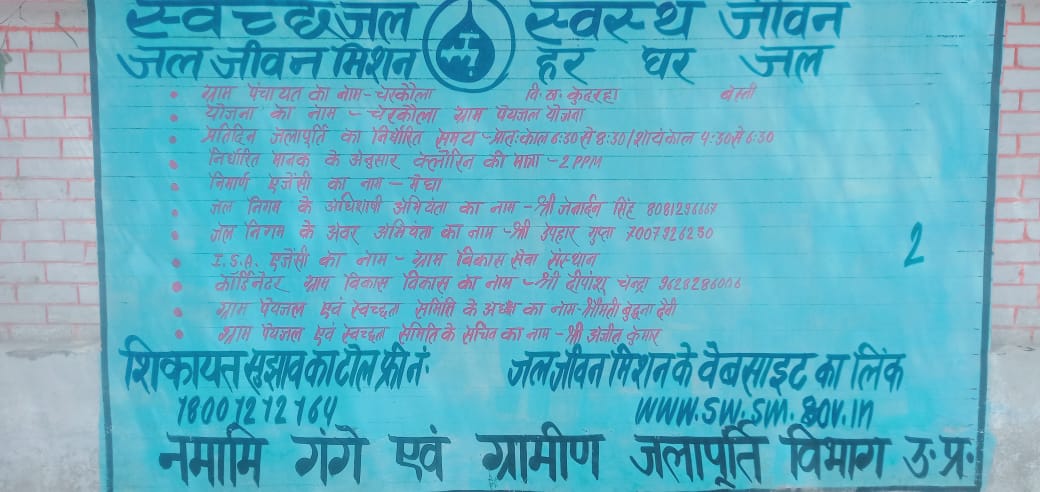 स्वच्छ जल स्वस्थ जीवन
जल जीवन मिशन हर घर जल
ग्राम पंचायत का नाम - चेरकौला वि. ख. कुदरहा बस्ती
योजना का नाम - चेरकौला ग्राम पेयजल योजना
प्रतिदिन जलापूर्ति का निर्धारित समय - प्रातः काल 6:30 से 8:30 / शायंकाल 4:30 से 6:30
निर्धारित मानक के अनुसार क्लोरिन की मात्रा - 2 PPM
निमार्ण ऐजेंसी का नाम - मेघा
जल निगम के अधिशाषी अभियंता का नाम - श्री जनार्दन सिंह 8081296667
जल निगम के अवर अभियंता का नाम - श्री उपहार गुप्ता 7007926230
2
I.S.A. ऐजेंसी का नाम - ग्राम विकास सेवा संस्थान
कॉर्डिनेटर ग्राम विकास विकास का नाम - श्री दीपांशू चन्द्रा 9628286006
ग्राम पेयजल एवं स्वच्छता समिति के अध्यक्ष का नाम - श्रीमती बुद्धना देवी
ग्राम पेयजल एवं स्वच्छता समिति के सचिव का नाम - श्री अजीत कुमार
शिकायत सुझाव का टोल फ्री नं. जल जीवन मिशन के वेबसाइट का लिंक
18001212164 WWW.SW.SM.GOV.in
नमामि गंगे एवं ग्रामीण जलापूर्ति विभाग उ. प्र.